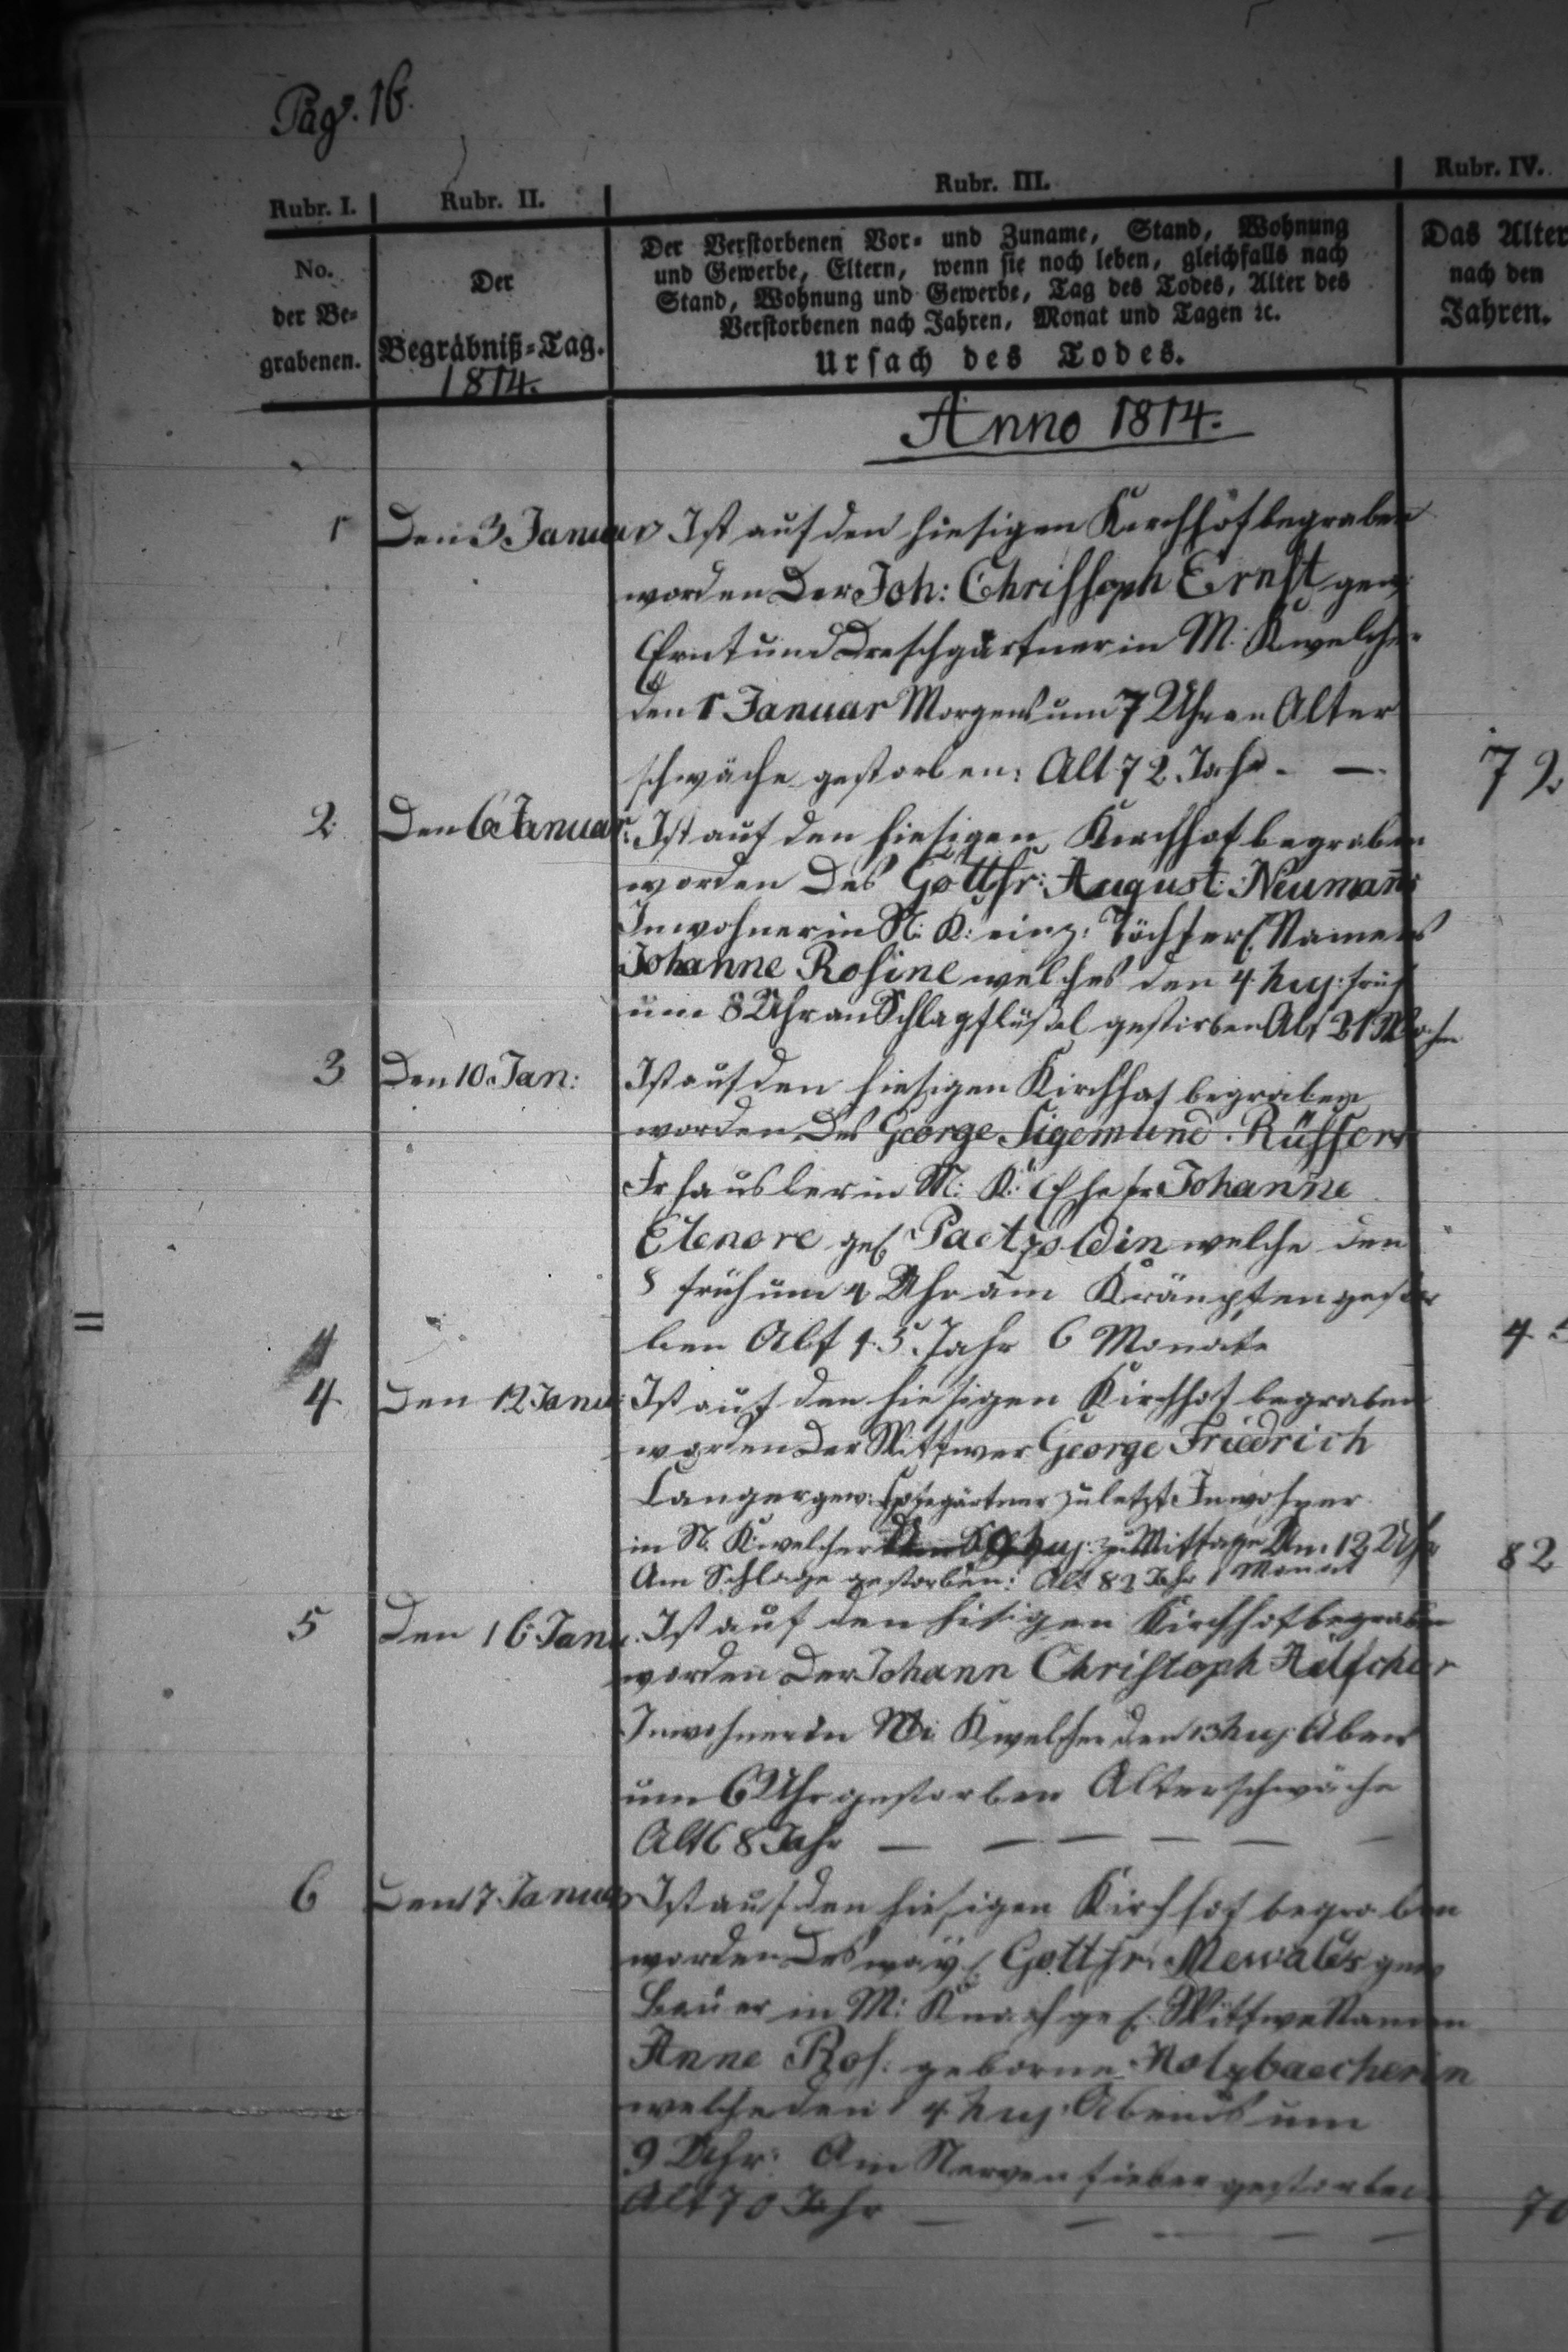 Pag. 16.
Rubr. I. Rubr. II. Rubr. III. Rubr. IV.
No.
der Be-
grabenen.
Der
Begräbniß-Tag.
1814.
Der Verstorbenen Vor- und Zuname, Stand, Wohnung
und Gewerbe, Eltern, wenn sie noch leben, gleichfalls nach
Stand, Wohnung und Gewerbe, Tag des Todes, Alter des
Verstorbenen nach Jahren, Monat und Tagen ꝛc.
Ursach des Todes.
Das Alter
nach den
Jahren.
Anno 1814.
1 Den 3 Januar Ist auf den hiesigen Kirchhof begraben
worden Der Joh: Christoph Ernst gew:
Ernt und Dreschgärtner in M: K welcher
den 1 Januar Morgens um 7 Uhr an Alter
schwäche gestorben: Alt 72 Jahr. — 72
2 Den 6 Januar: Ist auf den hiesigen Kirchhof begraben
worden Des Gottfr: August: Neumans
Inwohner in N: K: einz: Töchterl: Namens
Johanne Rosine welches den 4. huj: früh
um 8 Uhr an Schlagflüßel gestorben Alt 21 Wochen
3 Den 10. Jan: Ist auf den hiesigen Kirchhof begraben
worden Des George Sigemund Rüffers
Frhausler in M: K: Ehefr Johanne
Elenore geb Paetzoldin welche den
8 früh um 4 Uhr am Krämpfen gestor
ben Alt 45 Jahr 6 Monate 45
4 Den 12 Janu: Ist auf den hiesigen Kirchhof begraben
worden Der Wittwer George Friedrich
Langer gew: zuletzt Inwohner
in N. K welcher 9 huj: zu Mittage Um 12 Uhr
Am Schlage gestorben: Alt 82 Jahr 1 Monat 82
5 Den 16 Janu. Ist auf den hisigen Kirchhof begraben
worden Der Johann Christoph
Inwohner in K welcher den 13 huj: Abend
um 6 Uhr gestorben Alterschwäche
Alt 68 Jahr — — — — — —
6 Den 17 Januar Ist auf den hiesigen Kirchhof begraben
worden Des Gottfr: Mewalds gew
Bauer in M: K nachgel: Wittwe Namen
Anne Ros: geborne Holzbaecherin
welche den 14 huj: Abends um
9 Uhr: Am Nervenfieber gestorben
Alt 70 Jahr — — — — — 70